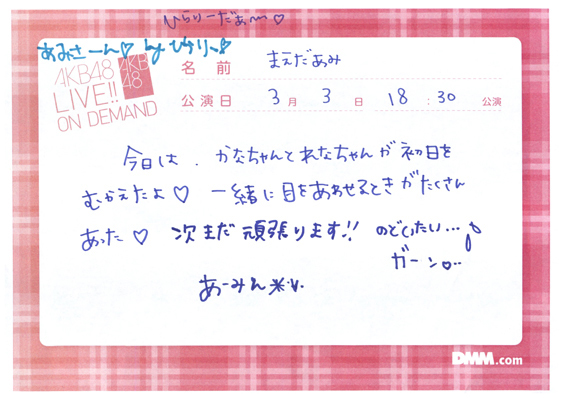 ひらりーだぁ〜♡
あみさーん♡ by ひらり〜♪
AKB48
LIVE!!
ON DEMAND
AKB
48
名前 まえだあみ
公演日 3月3日 18:30 公演
今日は、かなちゃんとれなちゃんが初日を
むかえたよ♡ 一緒に目をあわせるときがたくさん
あった♡ 次まだ頑張ります!! のどいたい…
ガーン
あーみん
DMM.com